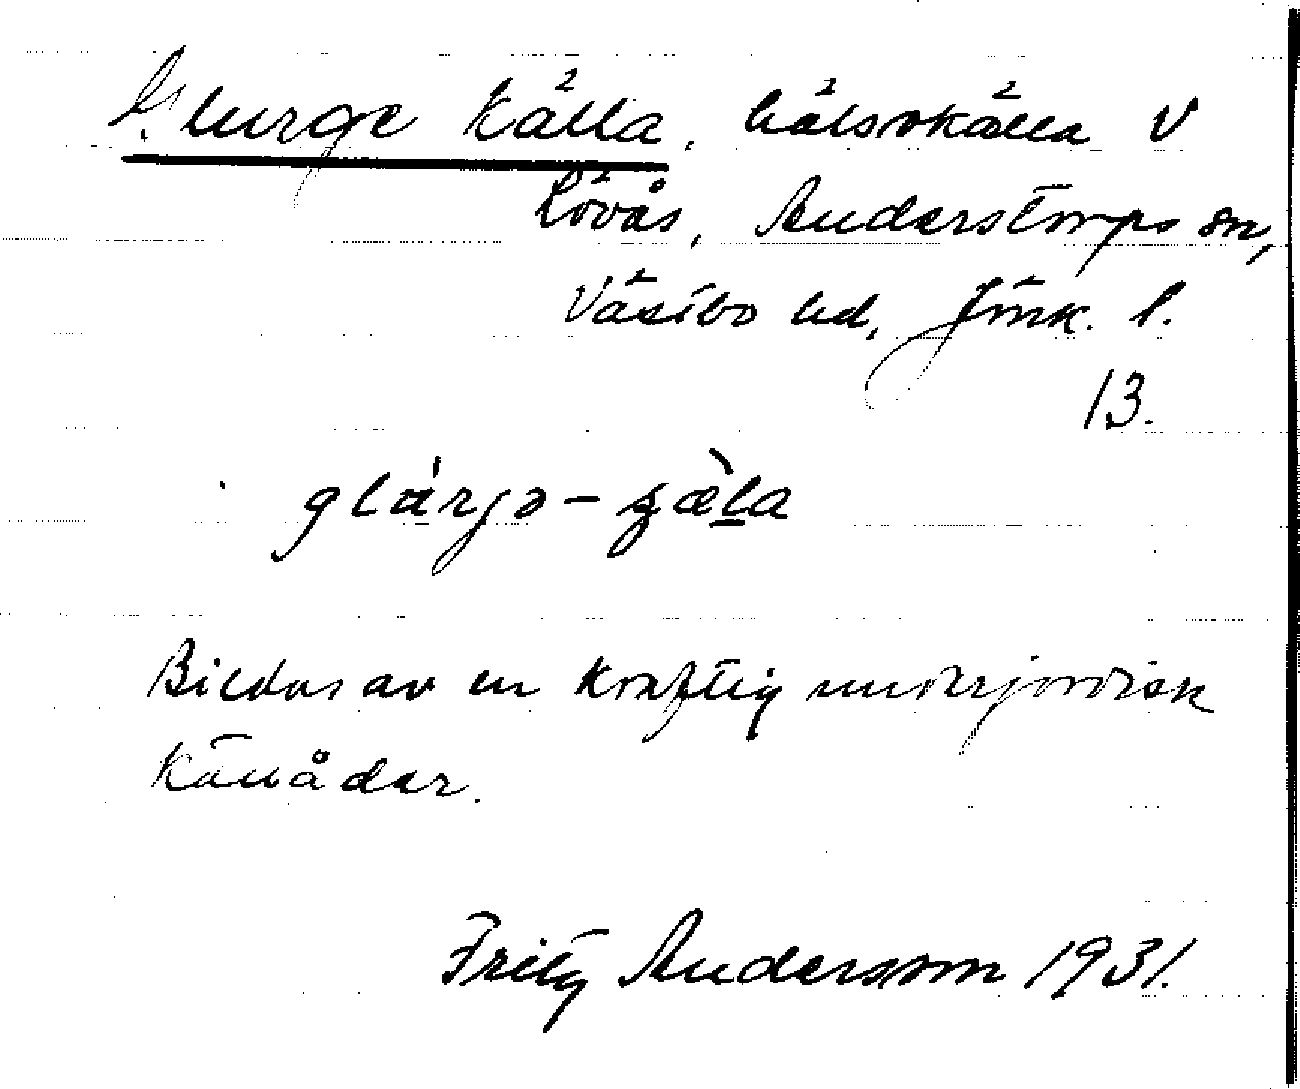 Glurge källa, hälsokälla V
Lövås, Anderstorps sn,
Västbo hd, Jönk. l.
13.
glárjə-
Bildas av en kraftig underjordisk
källåder.
Fritz Andersson 1931.